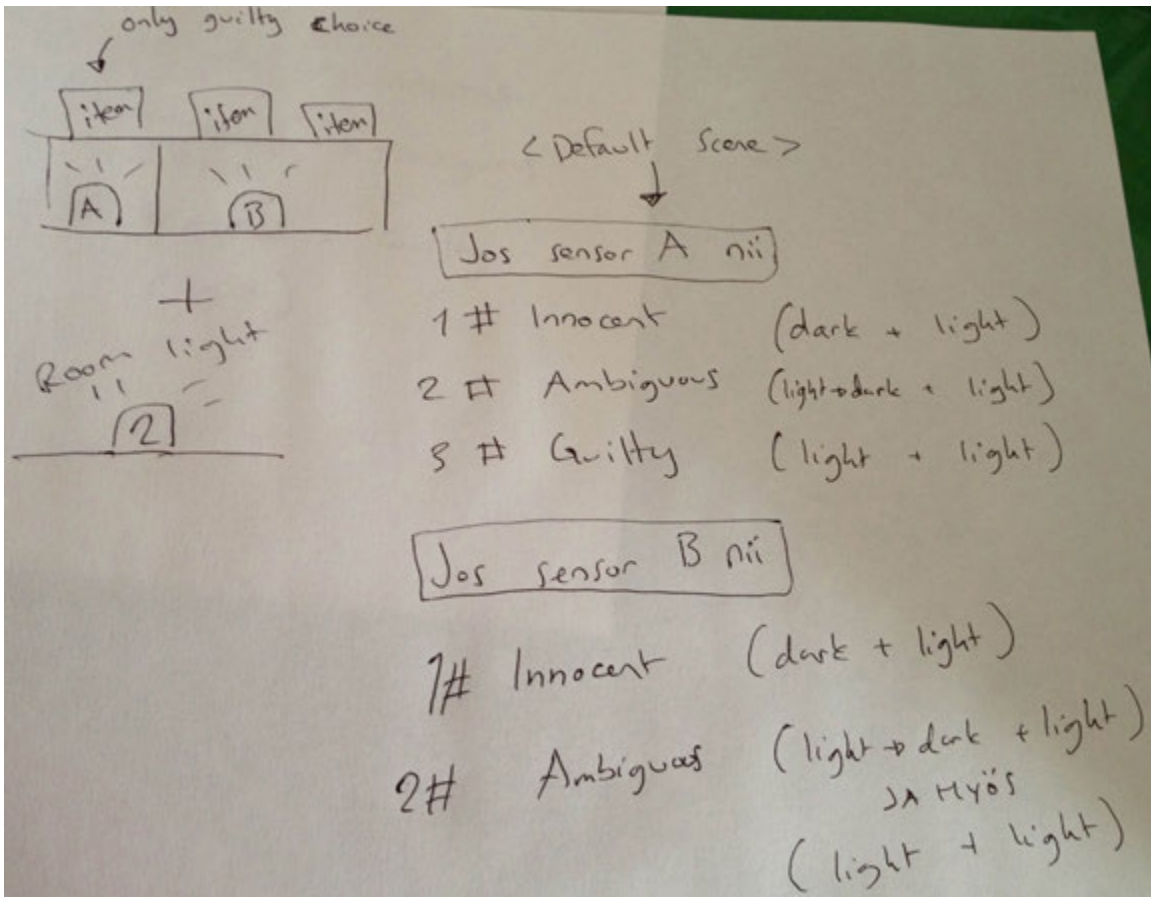 only guilty choice
item item item
A B
+
Room light
2
< Default Scene >
Jos sensor A nii
1 # Innocent (dark + light)
2 # Ambiguous (light→dark + light)
3 # Guilty (light + light)
Jos sensor B nii
1# Innocent (dark + light)
2# Ambiguous (light→dark + light)
JA MYÖS
(light + light)